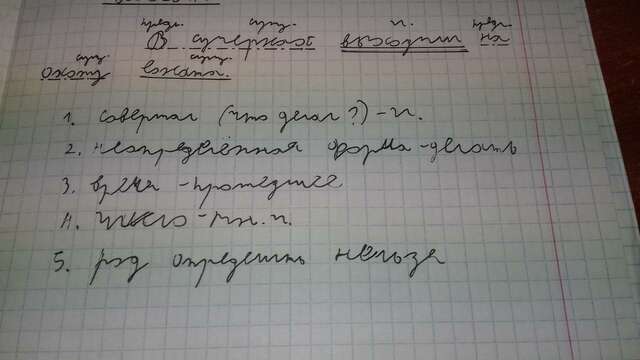 предл. сущ. г. предл.
В сумерках выходили на
сущ. сущ.
охоту
1. (что делал?) - г.
2. неопределённая форма - делать
3. время - прошедшее
4. число - мн. ч.
5. род определить нельзя